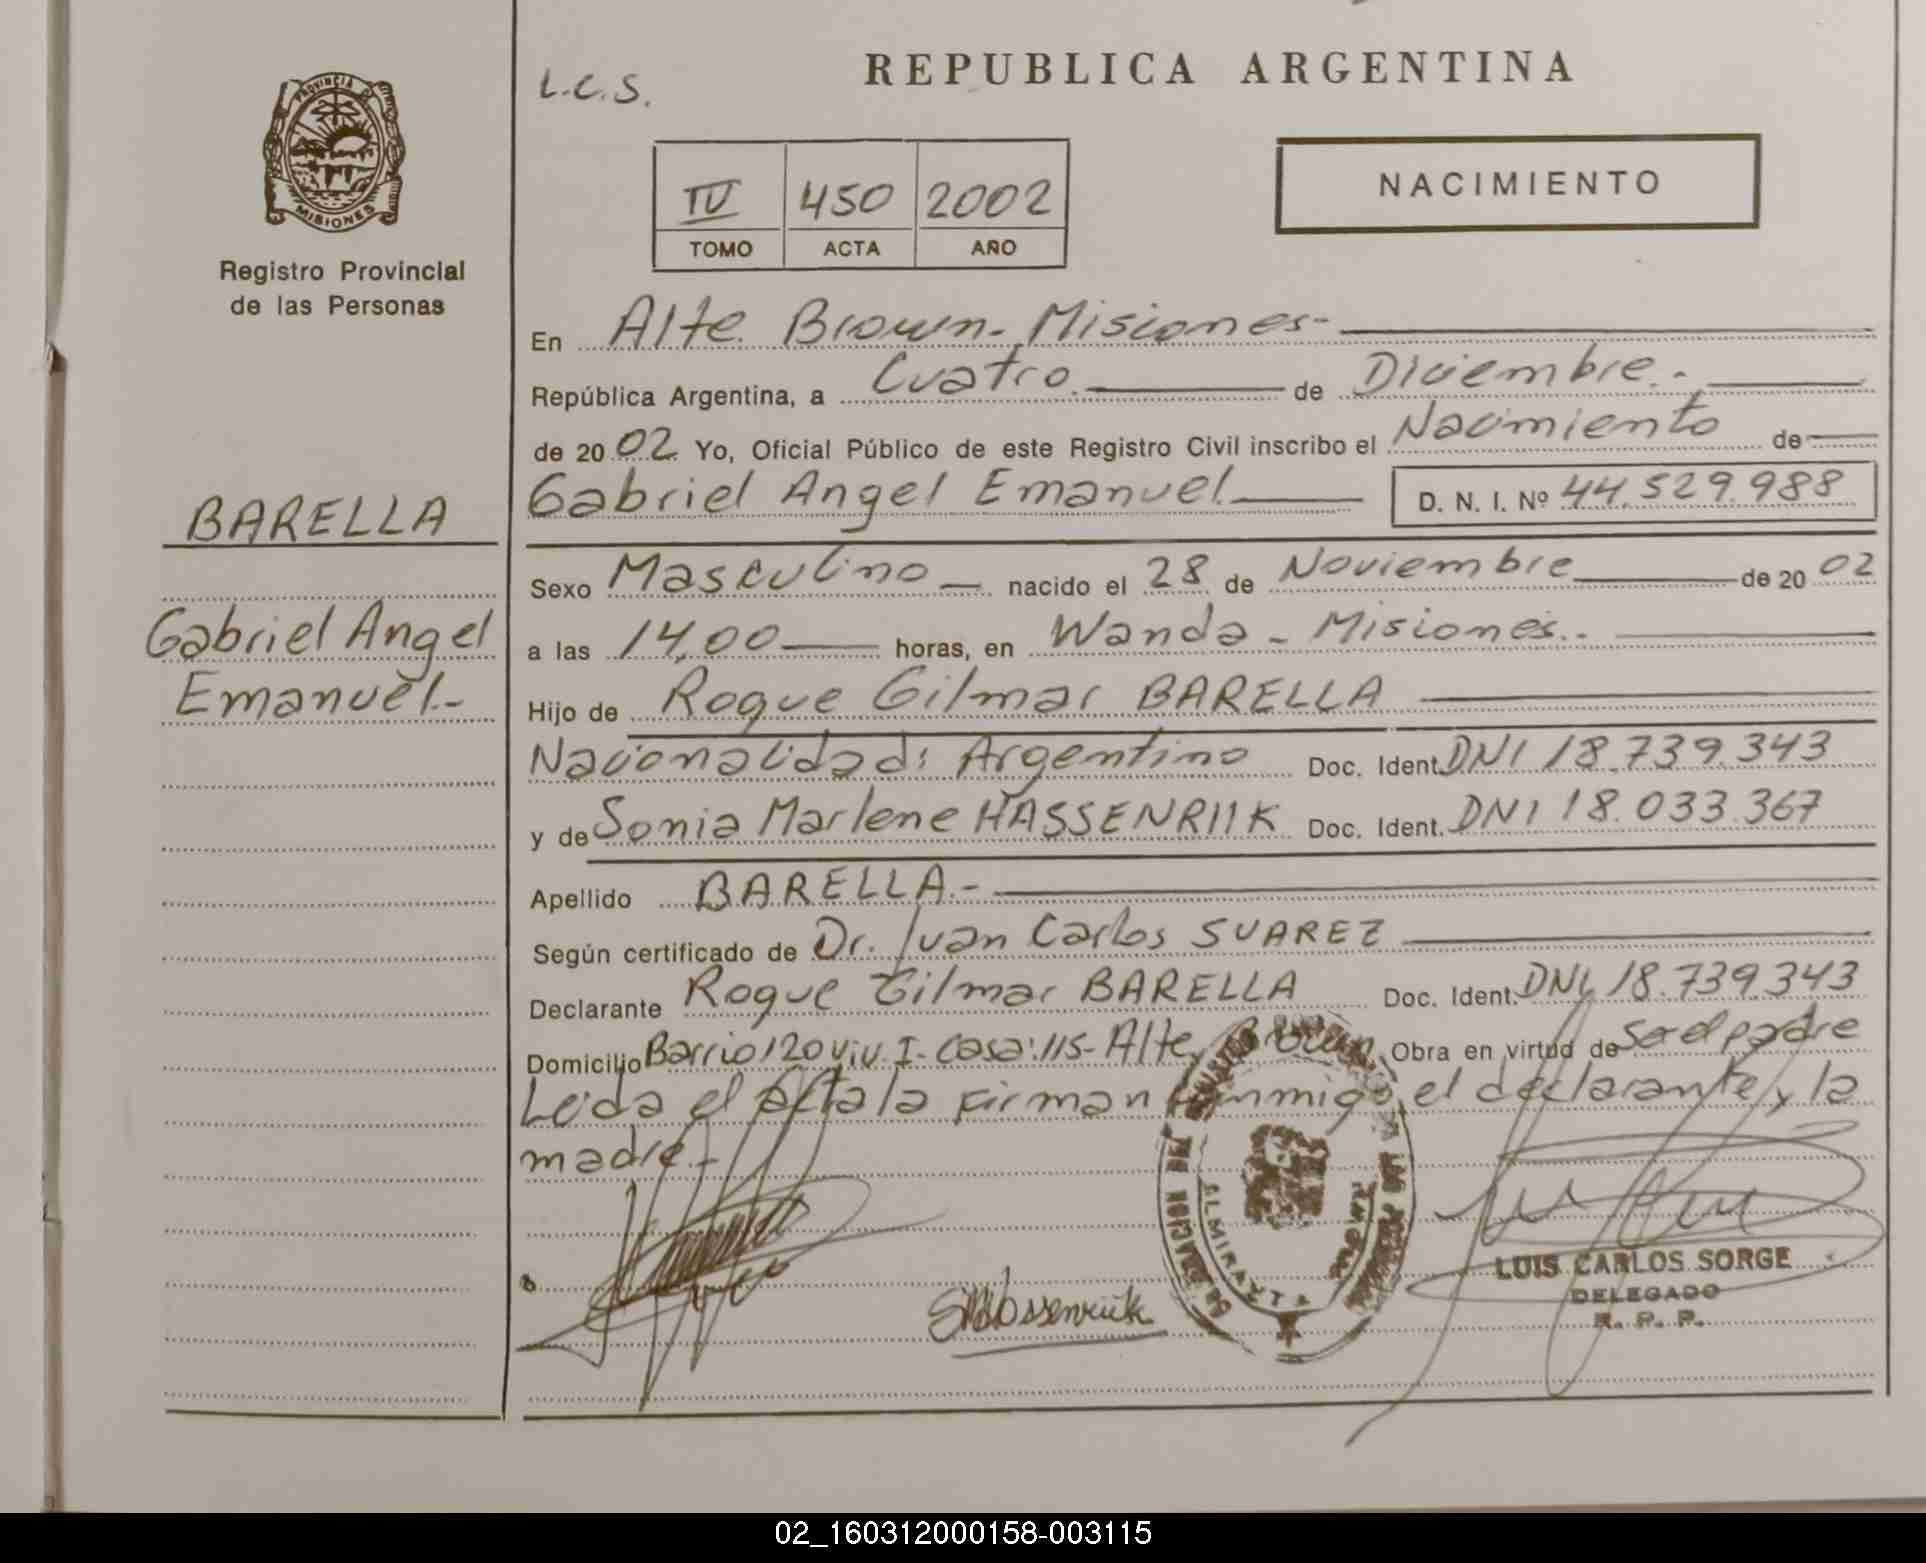 PROVINCIA DE
MISIONES
Registro Provincial
de las Personas
BARELLA
Gabriel Angel
Emanuel.-
L.C.S.
REPUBLICA ARGENTINA
IV 450 2002
TOMO ACTA AÑO
NACIMIENTO
En Alte. Brown- Misiones-
República Argentina, a Cuatro. de Diciembre.-
de 20 02. Yo, Oficial Público de este Registro Civil inscribo el Nacimiento de
Gabriel Angel Emanuel. D. N. I. Nº 44.529.988
Sexo Masculino nacido el 28 de Noviembre de 20 02
a las 14,00 horas, en Wanda - Misiones.-
Hijo de Roque Gilmar BARELLA
Nacionalidad: Argentino Doc. Ident. DNI 18.739.343
y de Sonia Marlene HASSENRIIK Doc. Ident. DNI 18.033.367
Apellido BARELLA.-
Según certificado de Dr. Juan Carlos SUAREZ
Declarante Roque Gilmar BARELLA Doc. Ident. DNI 18.739.343
Domicilio Barrio 120 viv. I- Casa: 115- Alte. Brown. Obra en virtud de Ser el padre
Leida el Acta la Firman Conmigo, el declarante y la
madre.-
ALMIRANTE
LUIS CARLOS SORGE
DELEGADO
R. P. P.
02_160312000158-003115